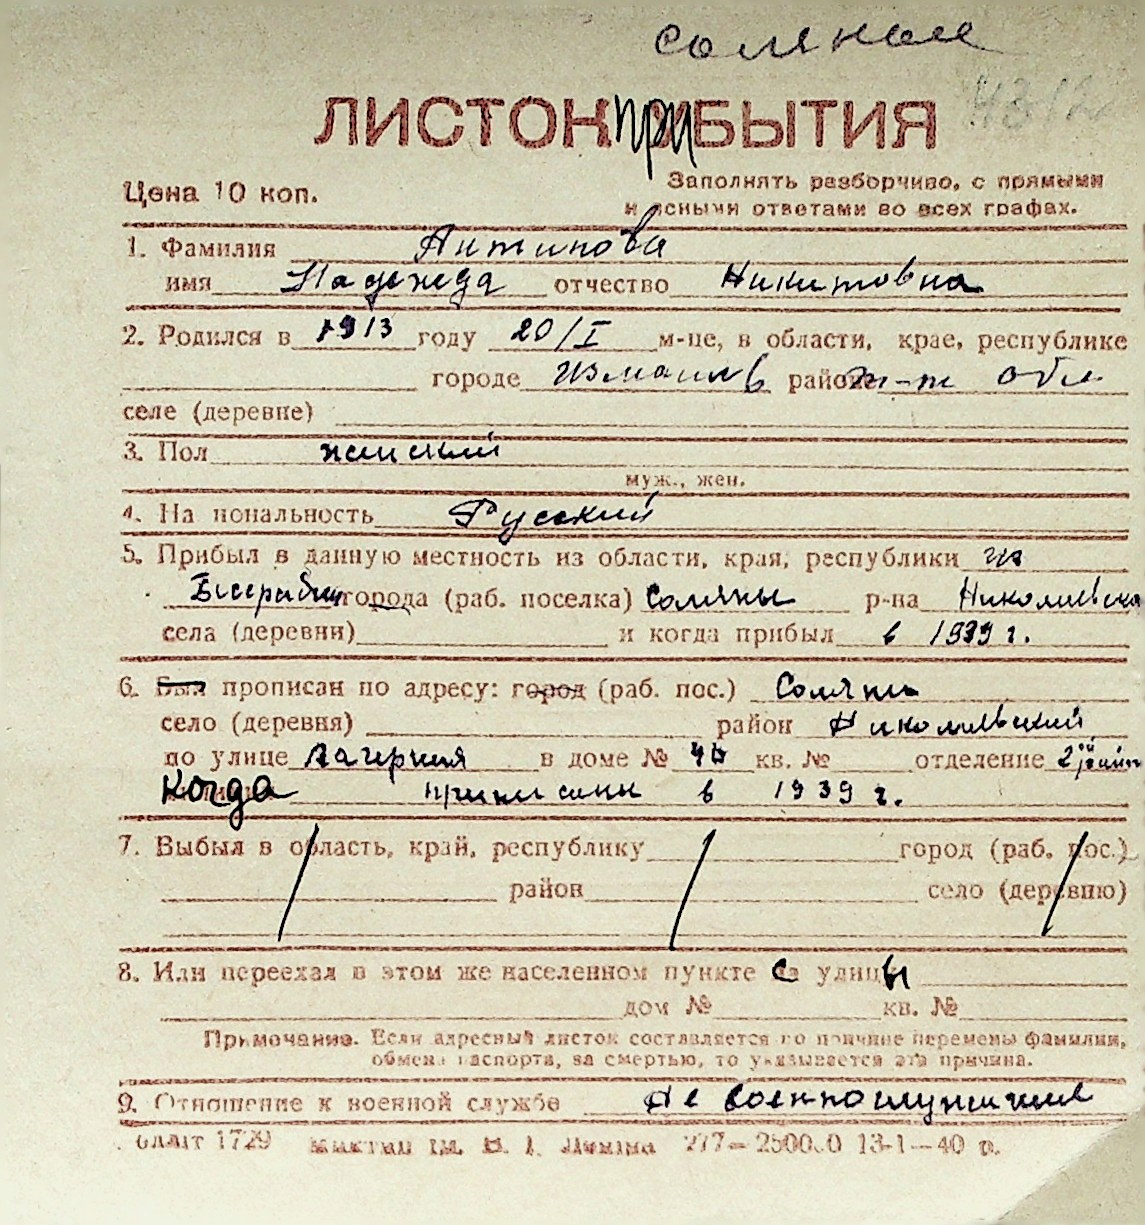 соляные
ЛИСТОК ПРИБЫТИЯ
Цена 10 коп.
Заполнять разборчиво, с прямыми
и ясными ответами во всех графах.
1. Фамилия Антипова
имя Надежда отчество Никитовна
2. Родился в 1913 году 20/I м-це, в области, крае, республике
городе Измаилъ районе обл
селе (деревне)
3. Пол женский
муж., жен.
4. Национальность Русский
5. Прибыл в данную местность из области, края, республики из
Бесерабии города (раб. поселка) Соляны р-на Николаевска
села (деревни) и когда прибыл в 1939 г.
6. Был прописан по адресу: город (раб. пос.) Соляны
село (деревня) район Николаевский
по улице Лагерная в доме № кв. № отделение
Когда прописаны в 1939 г.
7. Выбыл в область, край, республику город (раб. пос.)
район село (деревню)
8. Или переехал в этом же населенном пункте с улицы
дом № кв. №
Примечание. Если адресный листок составляется по причине перемены фамилии,
обмена паспорта, за смертью, то указывается эта причина.
9. Отношение к военной службе Не военнослужащие
1729 277—250000 13-1—40 р.